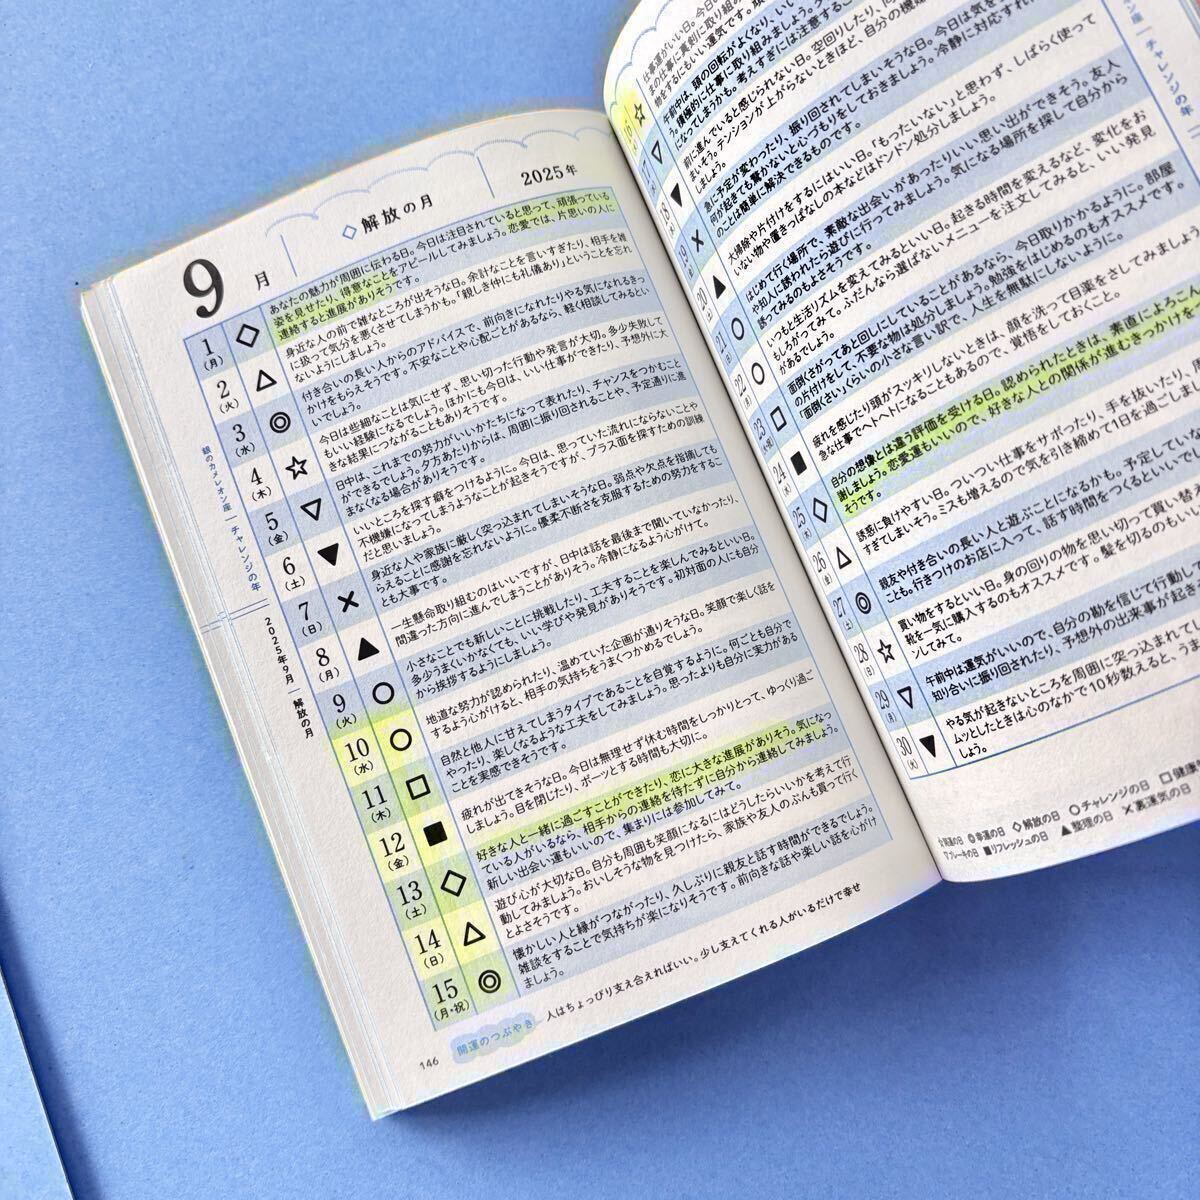 9 月
◇解放の月
2025年
1
(月)
◇
あなたの魅力が周囲に伝わる日。今日は注目されていると思って、頑張っている
姿を見せたり、得意なことをアピールしてみましょう。恋愛では、片思いの人に
連絡すると進展がありそうです。
2
(火)
△
身近な人の前で雑なところが出そうな日。余計なことを言いすぎたり、相手を雑
に扱って気分を悪くさせてしまうかも。「親しき仲にも礼儀あり」ということを忘れ
ないようにしましょう。
3
(水)
◎
付き合いの長い人からのアドバイスで、前向きになれたりやる気になれるきっ
かけをもらえそうです。不安なことや心配ごとがあるなら、軽く相談してみるとい
いでしょう。
4
(木)
☆
今日は些細なことは気にせず、思い切った行動や発言が大切。多少失敗して
もいい経験になるでしょう。ほかにも今日は、いい仕事ができたり、予想外に大
きな結果につながることもありそうです。
5
(金)
▽
日中は、これまでの努力がいいかたちになって表れたり、チャンスをつかむこと
ができるでしょう。夕方あたりからは、周囲に振り回されることや、予定通りに進
まなくなる場合がありそうです。
6
(土)
▼
いいところを探す癖をつけるように。今日は、思っていた流れにならないことや
不機嫌になってしまうようなことが起きそうですが、プラス面を探すための訓練
だと思いましょう。
7
(日)
×
身近な人や家族に厳しく突っ込まれてしまいそうな日。弱点や欠点を指摘しても
らえることに感謝を忘れないように。優柔不断さを克服するための努力をするこ
とも大事です。
8
(月)
▲
一生懸命取り組むのはいいですが、日中は話を最後まで聞いていなかったり、
間違った方向に進んでしまうことがありそう。冷静になるよう心がけて。
9
(火)
○
小さなことでも新しいことに挑戦したり、工夫することを楽しんでみるといい日。
多少うまくいかなくても、いい学びや発見がありそうです。初対面の人にも自分
から挨拶するようにしましょう。
10
(水)
○
地道な努力が認められたり、温めていた企画が通りそうな日。笑顔で楽しく話を
するよう心がけると、相手の気持ちをうまくつかめるでしょう。
11
(木)
□
自然と他人に甘えてしまうタイプであることを自覚するように。何ごとも自分で
やったり、楽しくなるような工夫をしてみましょう。思ったよりも自分に実力がある
ことを実感できそうです。
12
(金)
■
疲れが出てきそうな日。今日は無理せず休む時間をしっかりとって、ゆっくり過ご
しましょう。目を閉じたり、ボーッとする時間も大切に。
13
(土)
◇
好きな人と一緒に過ごすことができたり、恋に大きな進展がありそう。気になっ
ている人がいるなら、相手からの連絡を待たずに自分から連絡してみましょう。
新しい出会い運もいいので、集まりには参加してみて。
14
(日)
△
遊び心が大切な日。自分も周囲も笑顔になるにはどうしたらいいかを考えて行
動してみましょう。おいしそうな物を見つけたら、家族や友人のぶんも買って行く
とよさそうです。
15
(月・祝)
◎
懐かしい人と縁がつながったり、久しぶりに親友と話す時間ができるでしょう。
雑談をすることで気持ちが楽になりそうです。前向きな話や楽しい話を心がけ
ましょう。
開運のつぶやき
人はちょっぴり支え合えればいい。少し支えてくれる人がいるだけで幸せ
146
銀のカメレオン座｜チャレンジの年
2025年9月｜解放の月
ン座｜チャレンジの年
16
☆
17
▽
午前中は、頭の回転がよくなり、い
積極的に仕事に取り組みましょう。
になってしまうかも。考えすぎには注意する
18
▼
前に進んでいると感じられない日。空回りしたり、
まいそう。テンションが上がらないときほど、自分の機嫌
しましょう。
19
×
急に予定が変わったり、振り回されてしまいそうな日。今日は気を
何が起きても驚かないと心づもりをしておきましょう。冷静に対応すれ
のことは簡単に解決できるものです。
20
▲
大掃除や片付けをするにはいい日。「もったいない」と思わず、しばらく使って
いない物や置きっぱなしの本などはドンドン処分しましょう。
21
○
はじめて行く場所で、素敵な出会いがあったりいい思い出ができそう。友人
や知人に誘われたら遊びに行ってみましょう。気になる場所を探して自分から
誘ってみるのもよさそうです。
22
○
いつもと生活リズムを変えてみるといい日。起きる時間を変えるなど、変化をお
もしろがってみて。ふだんなら選ばないメニューを注文してみると、いい発見
があるでしょう。
23
□
面倒くさがってあと回しにしていることがあるなら、今日取りかかるように。部屋
の片付けをして、不要な物は処分しましょう。勉強をはじめるのもオススメです。
「面倒くさい」くらいの小さな言い訳で、人生を無駄にしないように。
24
■
疲れを感じたり頭がスッキリしないときは、顔を洗って目薬をさしてみましょう
急な仕事でヘトヘトになることもあるので、覚悟をしておくこと。
25
(木)
◇
自分の想像とは違う評価を受ける日。認められたときは、素直によろこん
謝しましょう。恋愛運もいいので、好きな人との関係が進むきっかけを
そうです。
26
(金)
△
誘惑に負けやすい日。ついつい仕事をサボったり、手を抜いたり、
すぎてしまいそう。ミスも増えるので気を引き締めて1日を過ごしま
27
(土)
◎
親友や付き合いの長い人と遊ぶことになるかも。予定してい
とも。行きつけのお店に入って、話す時間をつくるといいでし
28
(日)
☆
買い物をするといい日。身の回りの物を思い切って買い替え
靴を一気に購入するのもオススメです。髪を切るのもいい
ンしてみて。
29
(月)
▽
午前中は運気がいいので、自分の勘を信じて行動して
知り合いに振り回されたり、予想外の出来事が起き
30
(火)
▼
やる気が起きないところを周囲に突っ込まれて
ムッとしたときは心のなかで10秒数えると、うま
しょう。
☆開運の日 ◎幸運の日 ◇解放の日 ○チャレンジの日 □健康
▽ブレーキの日 ■リフレッシュの日 ▲整理の日 ×裏運気の日